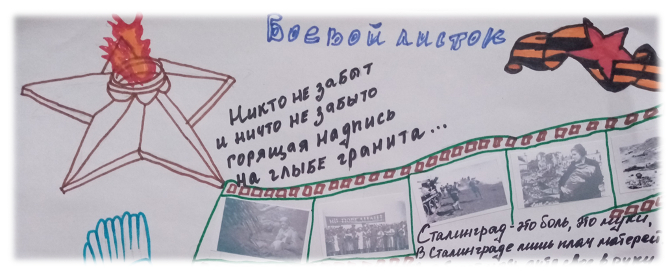 Боевой листок
Никто не забыт
и ничто не забыто
горящая надпись
на глыбе гранита...
Сталинград-это боль, это муки,
В Сталинграде лишь плач матерей